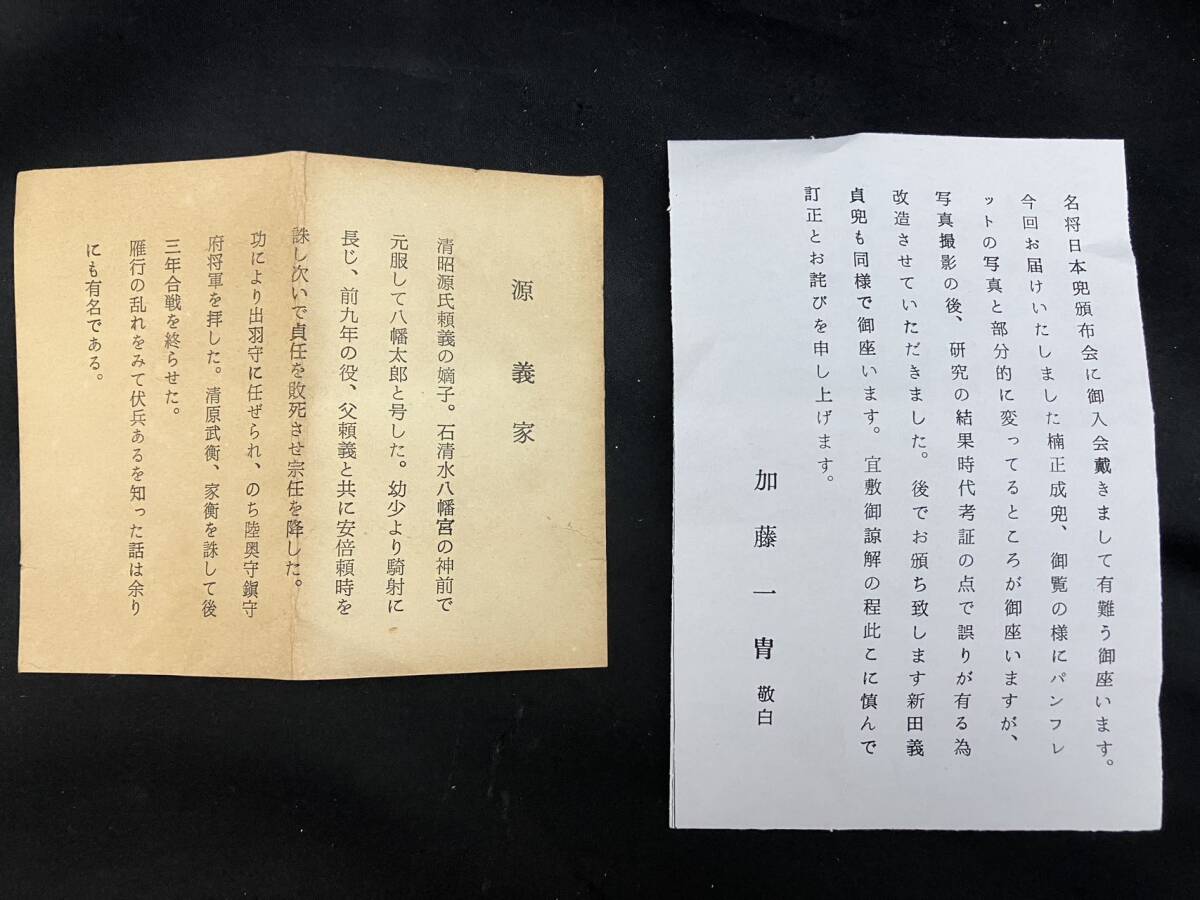 源義家
清昭源氏頼義の嫡子。石清水八幡宮の神前で
元服して八幡太郎と号した。幼少より騎射に
長じ、前九年の役、父頼義と共に安倍頼時を
誅し次いで貞任を敗死させ宗任を降した。
功により出羽守に任ぜられ、のち陸奥守鎭守
府将軍を拝した。清原武衡、家衡を誅して後
三年合戦を終らせた。
雁行の乱れをみて伏兵あるを知った話は余り
にも有名である。
名将日本兜頒布会に御入会戴きまして有難う御座います。
今回お届けいたしました楠正成兜、御覧の様にパンフレ
ットの写真と部分的に変ってるところが御座いますが、
写真撮影の後、研究の結果時代考証の点で誤りが有る為
改造させていただきました。後でお頒ち致します新田義
貞兜も同様で御座います。宜敷御諒解の程此こに慎んで
訂正とお詫びを申し上げます。
加藤一冑 敬白